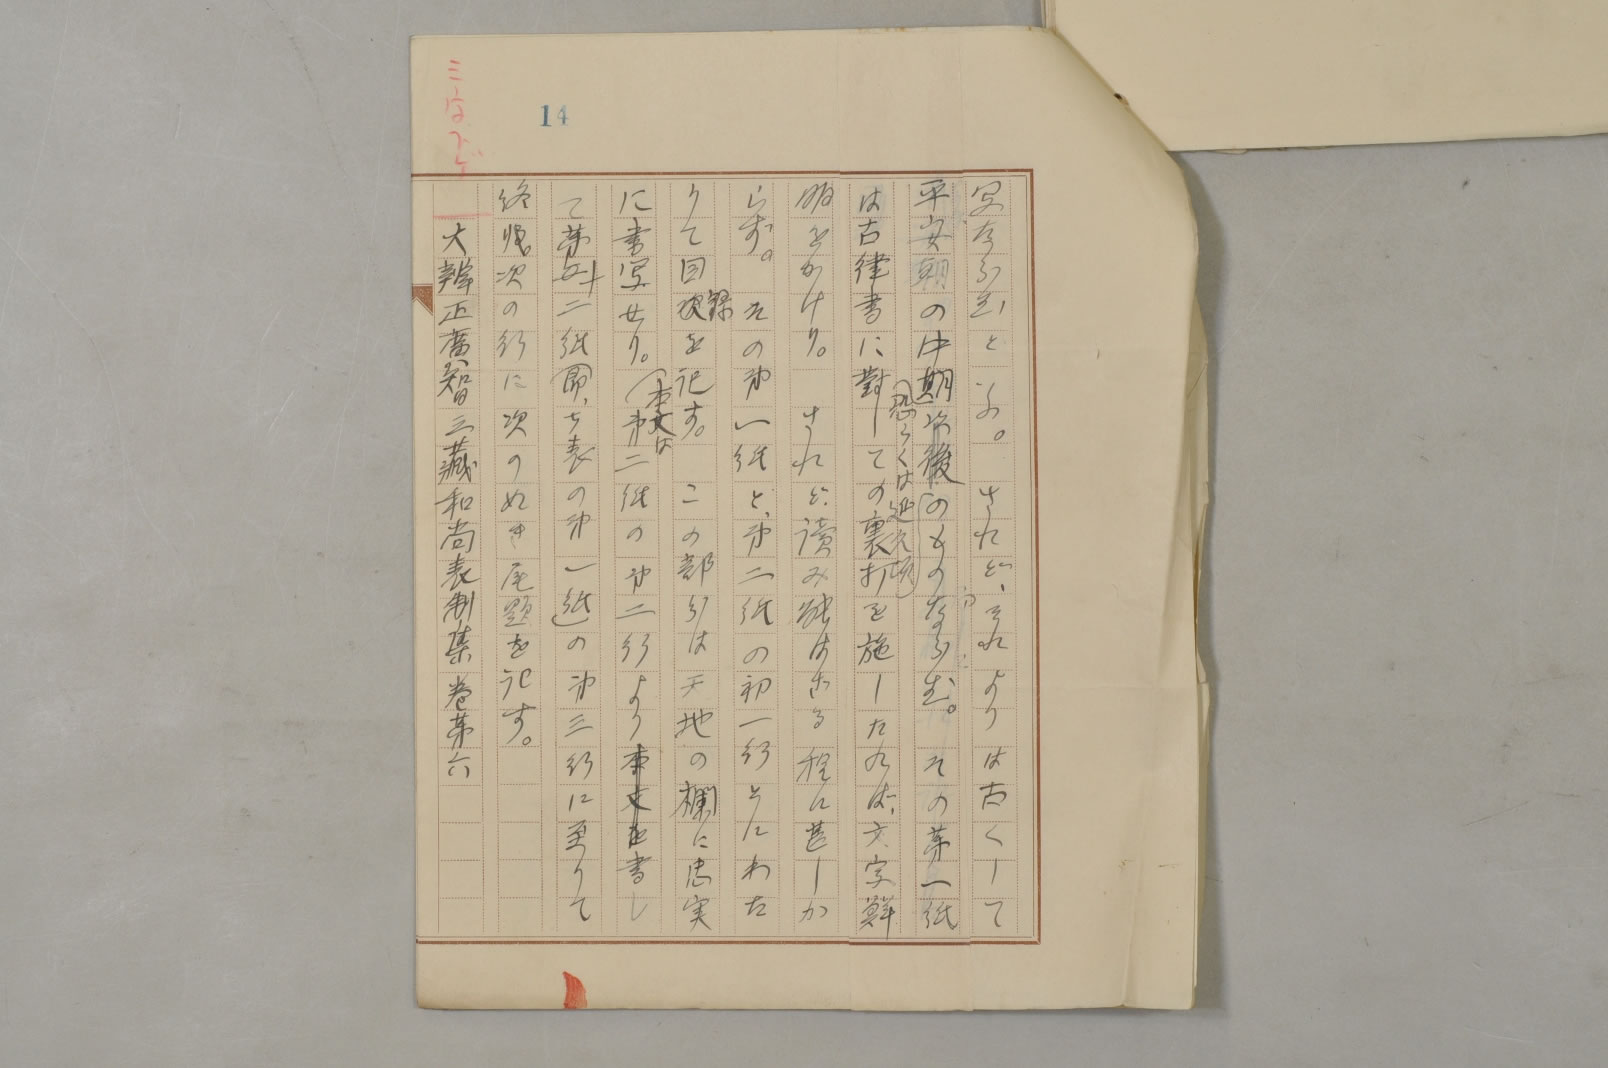 14
写ならむと云ふ。されど、それよりは古くして
平安朝の中期以後のものならむ。その第一紙
恐らくは延久頃
は古律書に對しての裏打を施したれば、文字鮮
明をかけり。されど読み能はざる程に甚しか
らず。その第一紙と、第二紙の初一行とにわた
りて目次を記す。この部分は天地の欄に忠実
録
に書写せり。第二紙の第二行より本文を書し
本文は
て第廿二紙即ち表の第一紙の第三行に至りて
終り、次の行に次のぬき尾題を記す。
大辨正廣智三藏和尚表制集卷第六